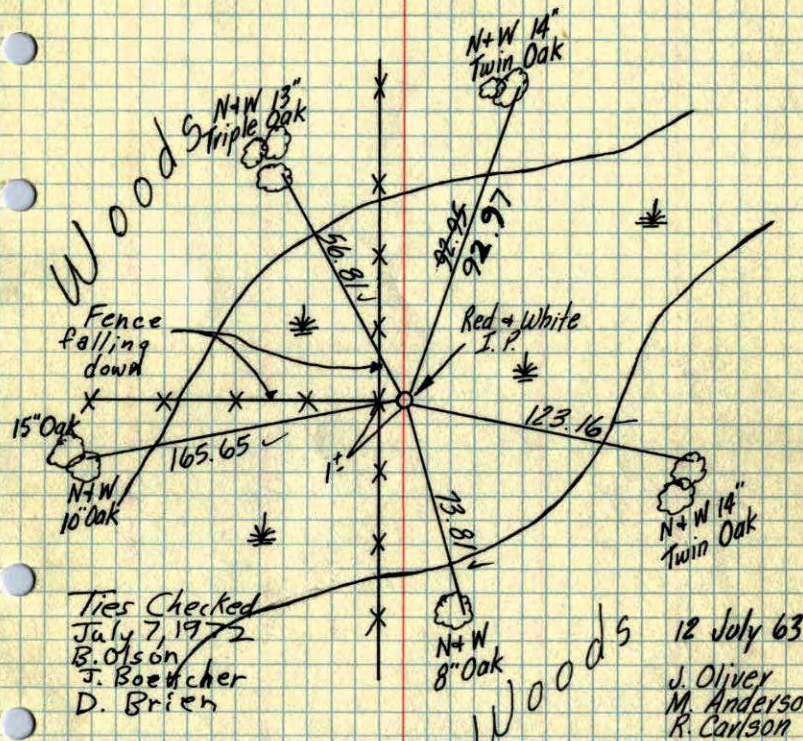 N+W 14"
Twin Oak
N+W 13"
Triple Oak
Woods
56.81
92.95
92.97
Fence
falling
down
Red + White
I.P.
15" Oak
165.65
N+W
10" Oak
1±
123.16
N+W 14"
Twin Oak
73.81
N+W
8" Oak
Woods
Ties Checked
July 7, 1972
B. Olson
J. Boettcher
D. Brien
12 July 63
J. Oliver
M. Anderso
R. Carlson